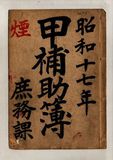 昭和十七年
甲補助簿
庶務課
煙